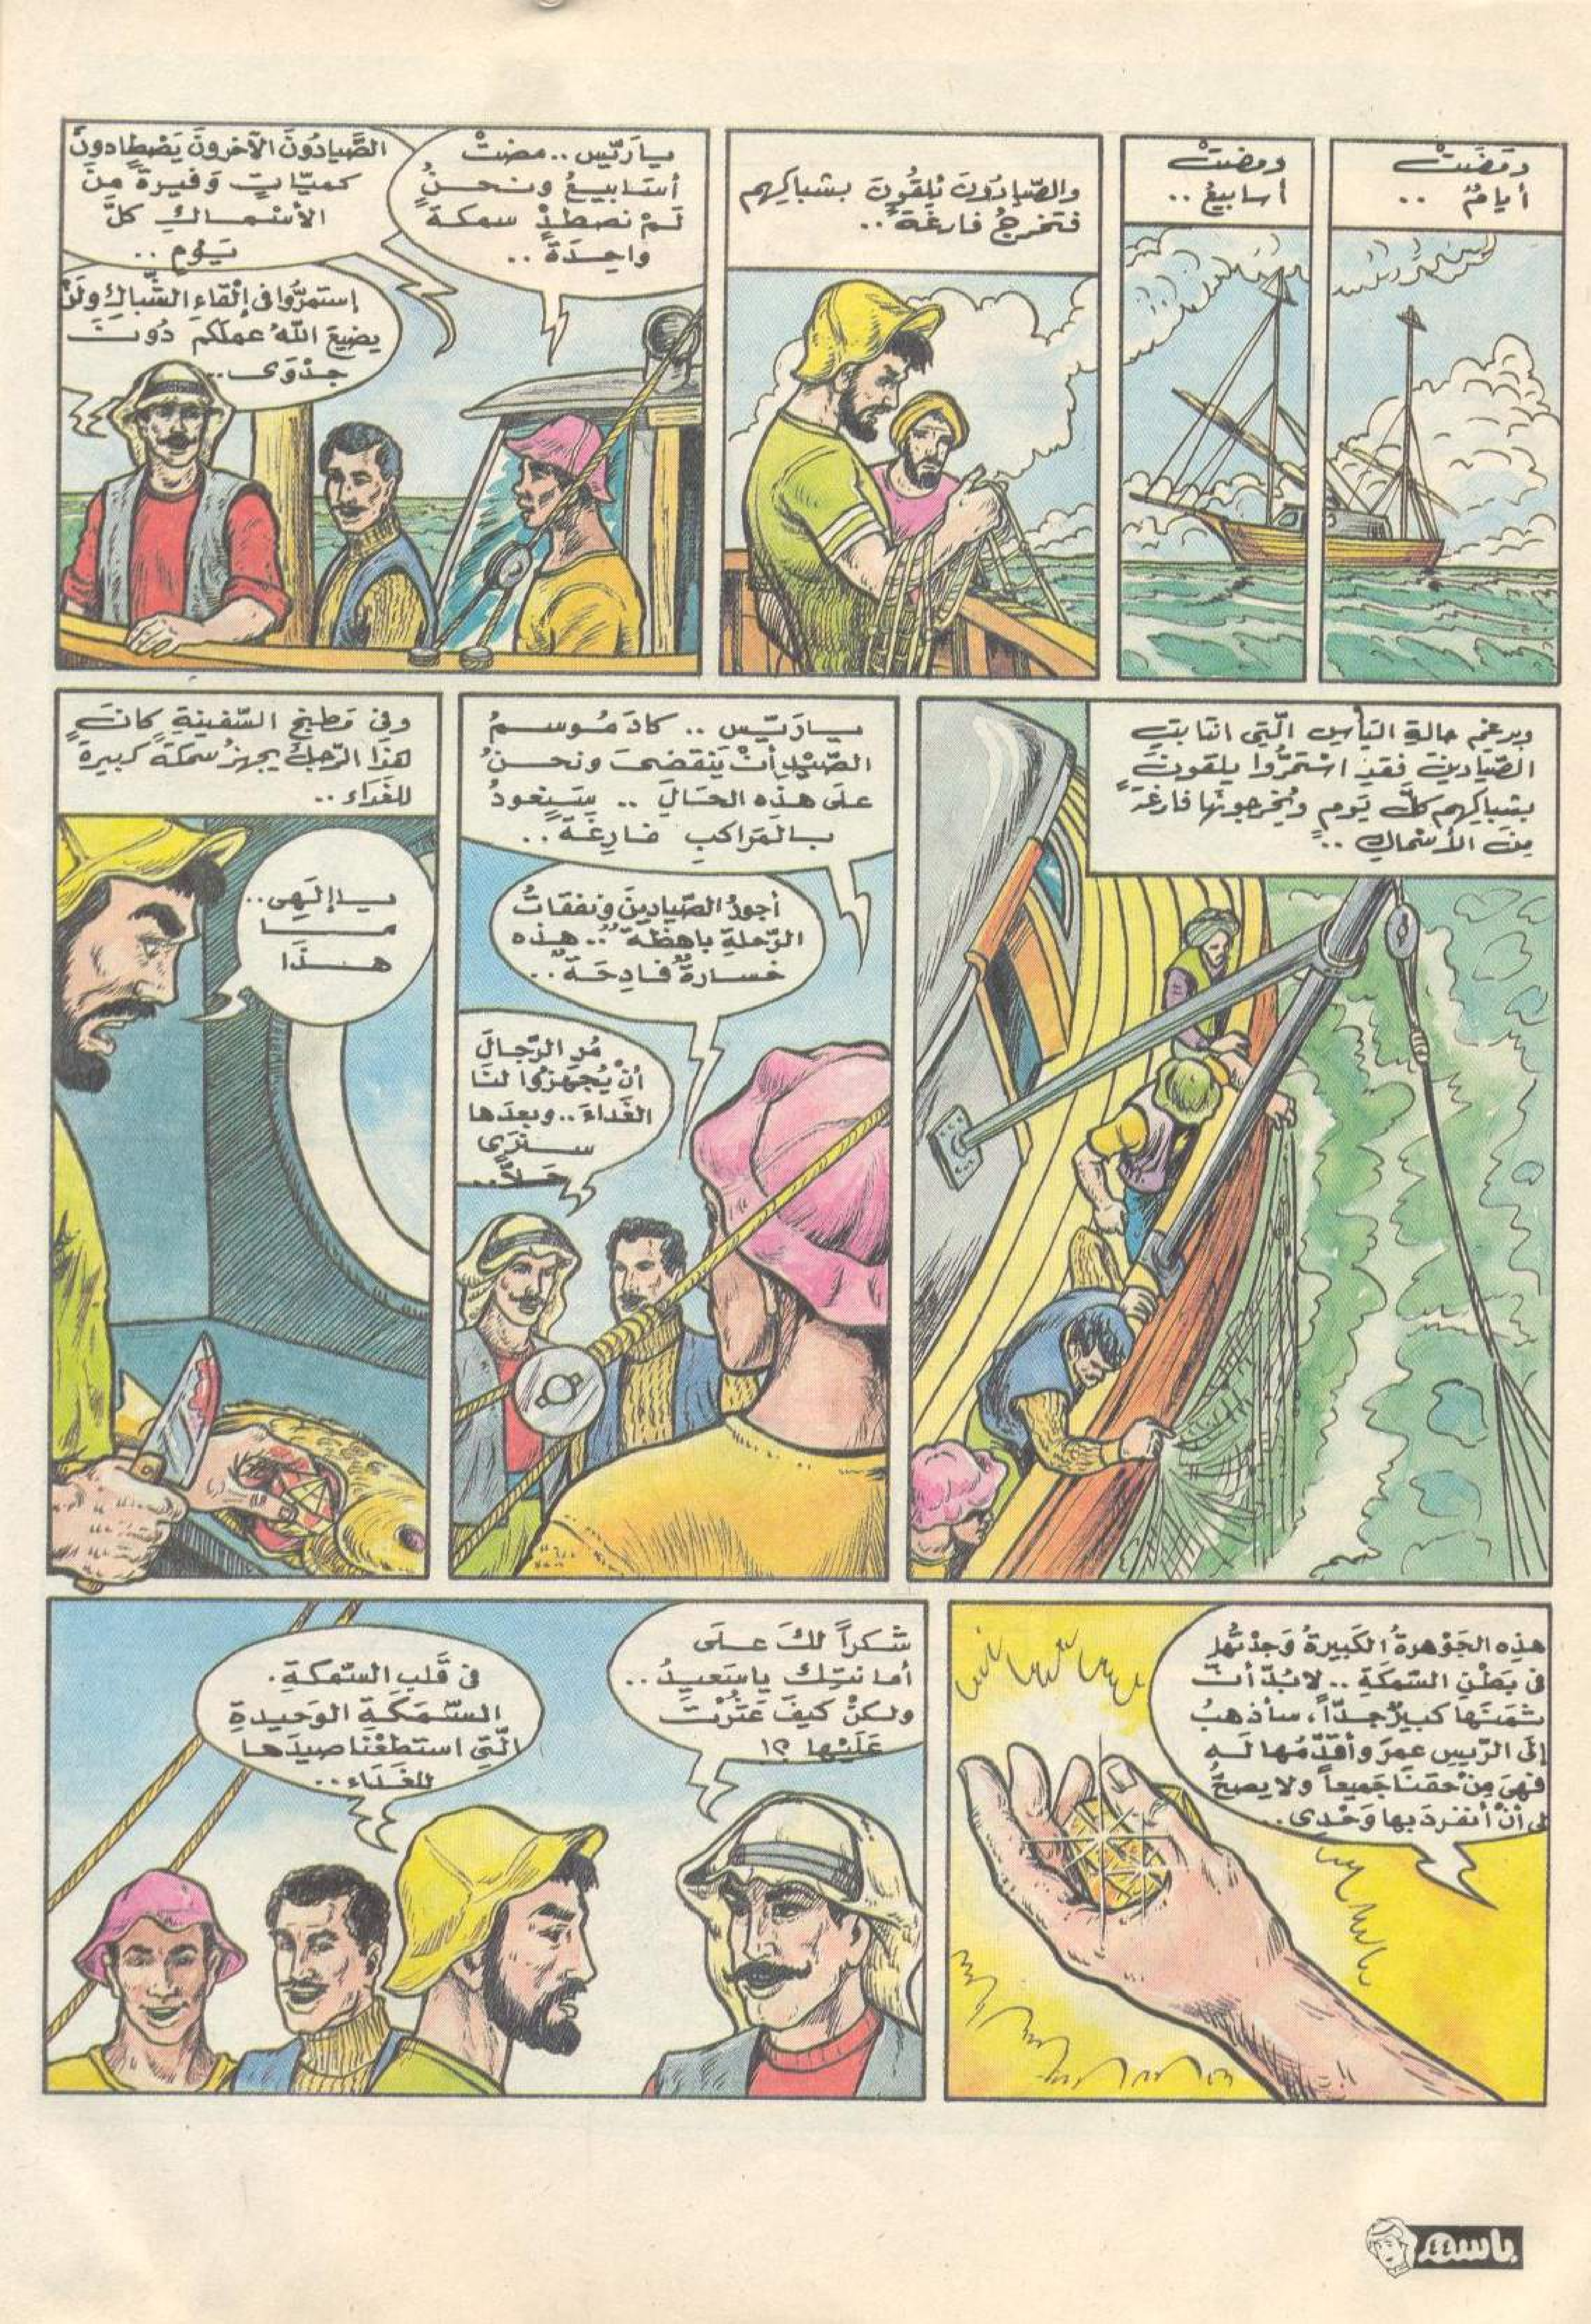 ومَضَتْ
أيامٌ ..
ومضتْ
أسابيعُ ..
والصّيادُونَ يُلقُونَ بشباكِهم
فتخرجُ فارغَةً ..
يا رَيّس .. مضتْ
أسَابيعُ ونحنُ
لَمْ نصطدْ سمكةً
واحِدَةً ..
الصَّيادُونَ الآخرونَ يَصْطادونَ
كميّاتٍ وَفيرةً مِنَ
الأسْماكِ كلَّ
يَوْمٍ ..
إستمرُّوا في إلْقاءِ الشّباكِ ولَنْ
يضيعَ اللهُ عملَكم دُونَ
جَدْوَى ..
وبرغمِ حالةِ اليَأسِ الّتي انتابتِ
الصّيادينَ فقدِ اسْتمَرُّوا يلقونَ
بشباكِهم كلَّ يَومٍ ويُخرجونَها فارغةً
مِنَ الأسْماكِ ..
يا رَيّس .. كادَ مَوسمُ
الصّيْدِ أنْ يَنقضىَ ونحنُ
علَى هذِه الحَالِ .. سَنعودُ
بالمَراكبِ فارِغَةً ..
أجورُ الصّيادينَ ونفقاتُ
الرّحلةِ باهظَةٌ .. هذِه
خسارةٌ فادِحَةٌ ..
مُرِ الرّجالَ
أنْ يُجهزُوا لنَا
الغَداءَ .. وبعدَها
سنَرَى
حَلاًّ ..
وفي مَطبخِ السّفينةِ كانَ
هذَا الرّجلُ يجهزُ سمكةً كبيرةً
للغَداءِ ..
يا إلَهِى ..
مَا
هذَا
هذِه الجَوْهرةُ الكَبيرةُ وَجدْتُها
في بَطْنِ السّمَكَةِ .. لابُدّ أنّ
ثمَنَها كبيرٌ جدّاً، سأذهبُ
إلَى الرّيسِ عمرَ وأقَدّمُها لَه
فهيَ مِنْ حَقنَا جَميعاً ولا يصحُّ
لِى أنْ أنفردَ بها وَحْدى ..
شكراً لكَ علَى
أمانتِك ياسَعيدُ ..
ولكنْ كيفَ عَثَرْتَ
عَلَيْها ؟!
في قَلبِ السّمكَةِ .
السّمَكَةِ الوَحيدةِ
الّتي استطَعْنا صيدَها
للغَدَاءِ ..
باسم